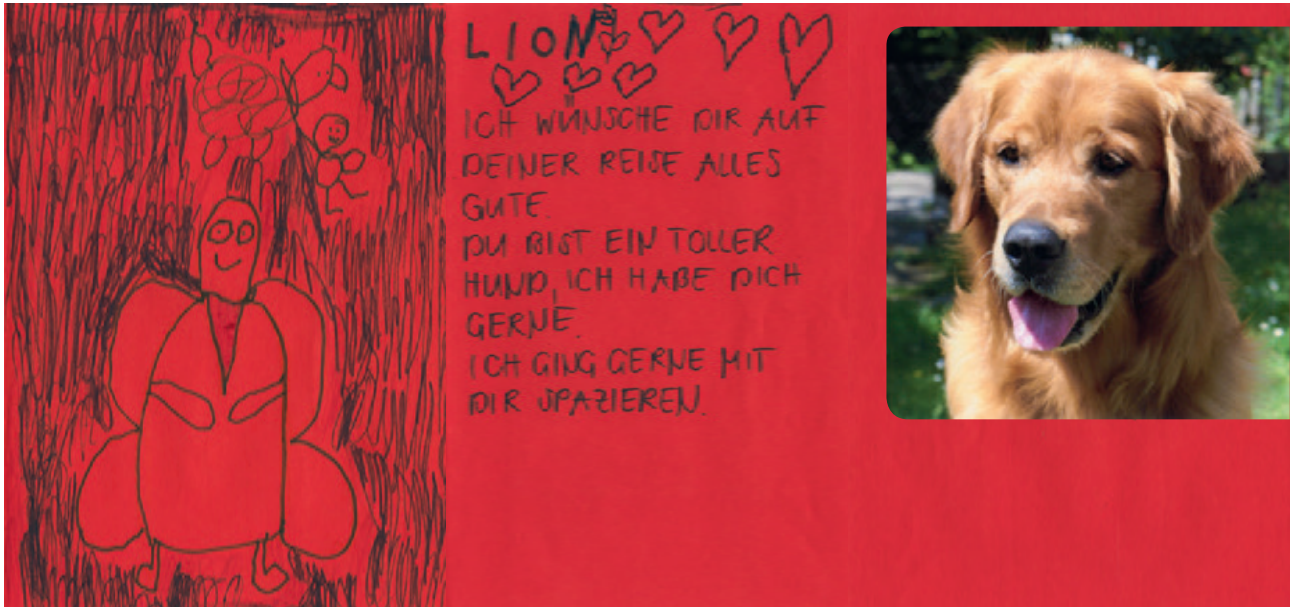 LION
ICH WÜNSCHE DIR AUF
DEINER REISE ALLES
GUTE.
DU BIST EIN TOLLER
HUND, ICH HABE DICH
GERNE.
ICH GING GERNE MIT
DIR SPAZIEREN.